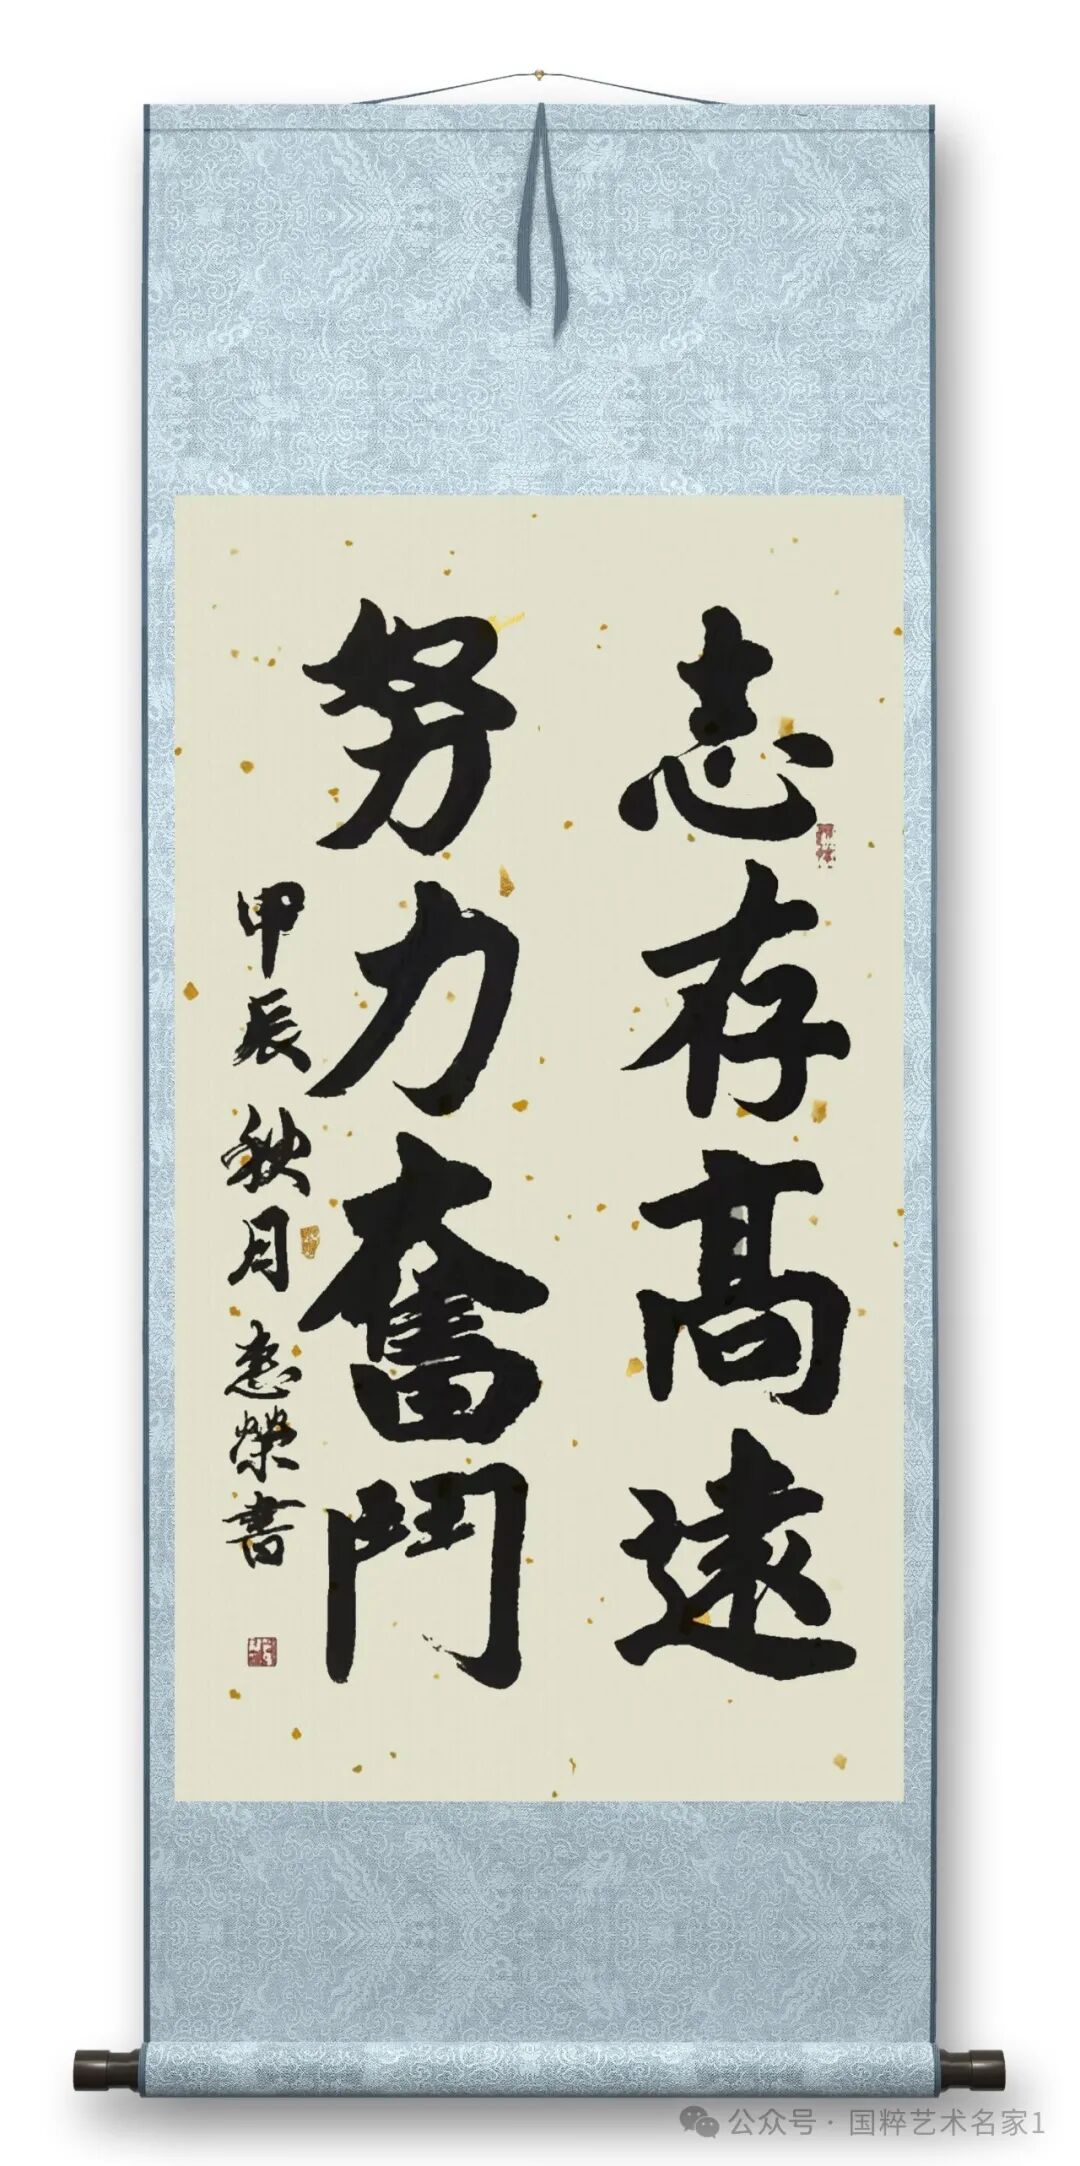 志存高遠
努力奮鬥
甲辰秋月志榮書
公众号·国粹艺术名家1